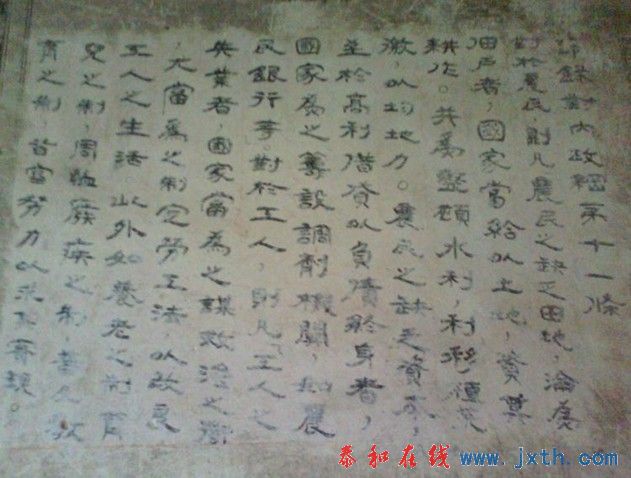 節錄對內政綱第十一條
對於農民,則凡農民之缺乏田地,淪為
佃戶者,國家當給以土地,資其
耕作。并為整頓水利,利移殖荒
徼,以均地力。農民之缺乏資本,
至於高利借貸以負債終身者,
國家為之籌設調劑機關,如農
民銀行等。對於工人,則凡工人之
失業者,國家當為之謀救治之術
,尤當為之制定勞工法,以改良
工人之生活。此外如養老之制,育
兒之制,周恤廢疾之制,普及教
育之制,皆當努力以求其實現。
泰和在线 www.jxth.com